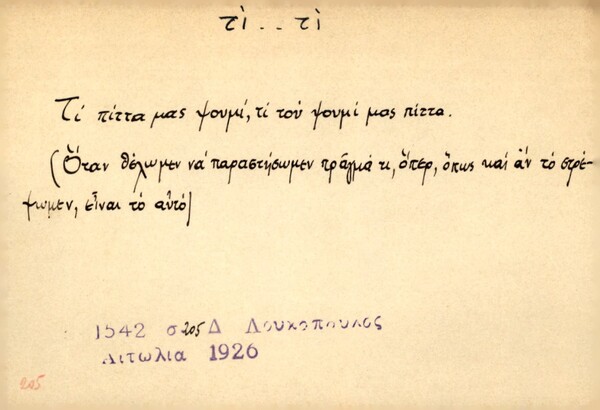 τὶ .. τὶ
Τί πίττα μας ψουμί, τί τοῦ ψουμί μας πίττα.
(Ὅταν θέλωμεν νά παραστήσωμεν πρᾶγμά τι, ὅπερ, ὅπως καί ἄν τό στρέ-
ψωμεν, εἶναι τό αὐτό)
1542 σ 205 Δ Λουκοπουλος
Αιτωλια 1926
205